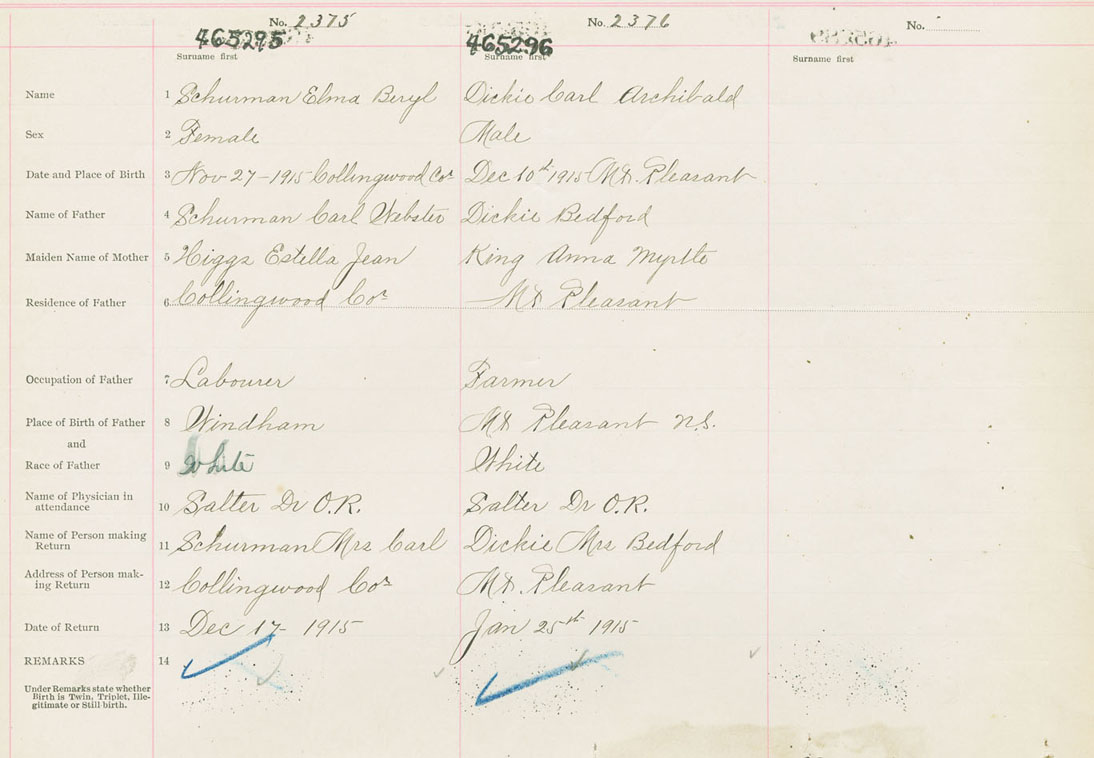 No. 2375 No. 2376 No.
465295 465296
Surname first Surname first Surname first
Name 1 Schurman Elma Beryl Dickie Carl Archibald
Sex 2 Female Male
Date and Place of Birth 3 Nov 27-1915 Collingwood Cor Dec 10th 1915 Mt. Pleasant
Name of Father 4 Schurman Carl Webster Dickie Bedford
Maiden Name of Mother 5 Higgs Estella Jean King Anna Myrtle
Residence of Father 6 Collingwood Cor Mt Pleasant
Occupation of Father 7 Labourer Farmer
Place of Birth of Father 8 Windham Mt Pleasant N.S.
and
Race of Father 9 White White
Name of Physician in
attendance 10 Salter Dr O.R. Salter Dr O.R.
Name of Person making
Return 11 Schurman Mrs Carl Dickie Mrs Bedford
Address of Person mak-
ing Return 12 Collingwood Cor Mt. Pleasant
Date of Return 13 Dec 17- 1915 Jan 25st 1915
REMARKS 14
Under Remarks state whether
Birth is Twin, Triplet, Ille-
gitimate or Still birth.